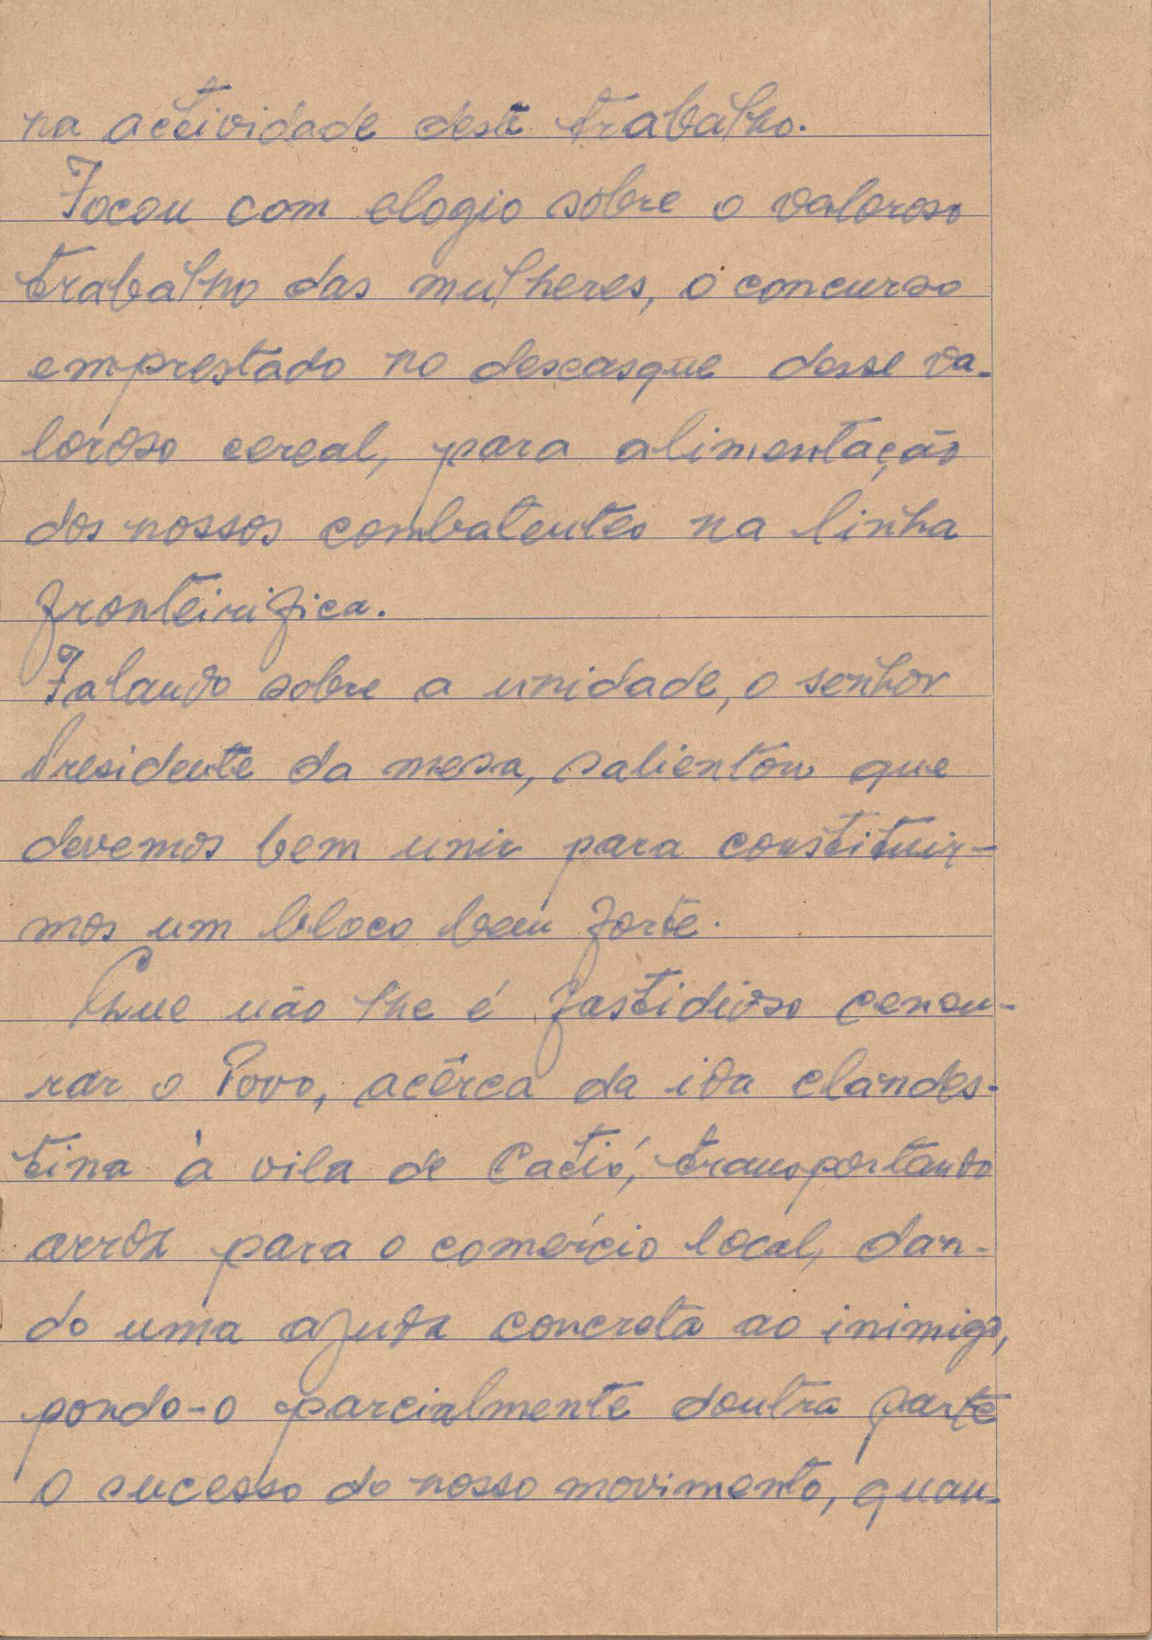 na actividade deste trabalho.
Focou com elogio sôbre o valoroso
trabalho das mulheres, o concurso
emprestado no descasque desse va-
loroso cereal, para alimentação
dos nossos combatentes na linha
fronteirifica.
Falando sobre a unidade, o senhor
Presidente da mesa, salientou que
devemos bem unir para constituir-
mos um bloco bem forte.
Que não lhe é fastidioso censu-
rar o Povo, acêrca da ida clandes-
tina à vila de Catió, transportando
arroz para o comércio local, dan-
do uma ajuda concreta ao inimigo,
pondo-o parcialmente doutra parte
o sucesso do nosso movimento, quan-